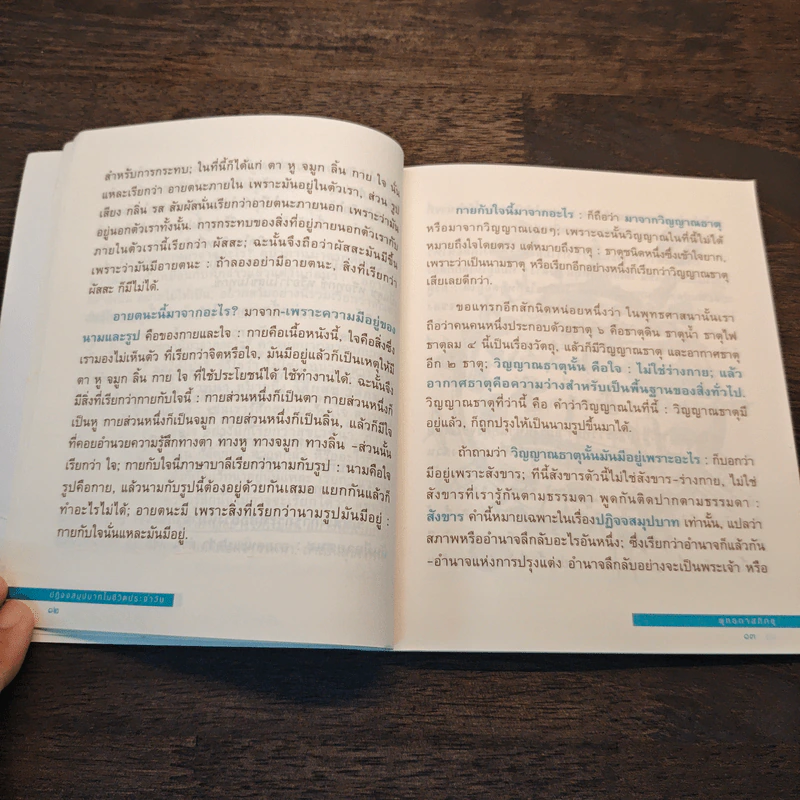 สำหรับการกระทบ; ในที่นี้ก็ได้แก่ ตา หู จมูก ลิ้น กาย ใจ นั่น
แหละเรียกว่า อายตนะภายใน เพราะมันอยู่ในตัวเรา, ส่วน รูป
เสียง กลิ่น รส สัมผัสนั่นเรียกว่าอายตนะภายนอก เพราะว่ามัน
อยู่นอกตัวเราทั้งนั้น. การกระทบของสิ่งที่อยู่ภายนอกตัวเรากับ
ภายในตัวเรานี้เรียกว่า ผัสสะ; ฉะนั้นจึงถือว่าผัสสะมันมีขึ้น
เพราะว่ามันมีอายตนะ : ถ้าลองอย่ามีอายตนะ, สิ่งที่เรียกว่า
ผัสสะ ก็มีไม่ได้.
อายตนะนี้มาจากอะไร? มาจาก-เพราะความมีอยู่ของ
นามและรูป คือของกายและใจ : กายคือเนื้อหนังนี้, ใจคือสิ่งซึ่ง
เรามองไม่เห็นตัว ที่เรียกว่าจิตหรือใจ, มันมีอยู่แล้วก็เป็นเหตุให้มี
ตา หู จมูก ลิ้น กาย ใจ ที่ใช้ประโยชน์ได้ ใช้ทำงานได้. ฉะนั้นจึง
มีสิ่งที่เรียกว่ากายกับใจนี้ : กายส่วนหนึ่งก็เป็นตา กายส่วนหนึ่งก็
เป็นหู กายส่วนหนึ่งก็เป็นจมูก กายส่วนหนึ่งก็เป็นลิ้น, แล้วก็มีใจ
ที่คอยอำนวยความรู้สึกทางตา ทางหู ทางจมูก ทางลิ้น -ส่วนนั้น
เรียกว่า ใจ; กายกับใจนี้ภาษาบาลีเรียกว่านามกับรูป : นามคือใจ
รูปคือกาย, แล้วนามกับรูปนี้ต้องอยู่ด้วยกันเสมอ แยกกันแล้วก็
ทำอะไรไม่ได้; อายตนะมี เพราะสิ่งที่เรียกว่านามรูปมันมีอยู่ :
กายกับใจนั่นแหละมันมีอยู่.
ปฏิจจสมุปบาทในชีวิตประจำวัน
๑๒
กายกับใจนี้มาจากอะไร : ก็ถือว่า มาจากวิญญาณธาตุ
หรือมาจากวิญญาณเฉยๆ; เพราะฉะนั้นวิญญาณในที่นี้ไม่ได้
หมายถึงใจโดยตรง แต่หมายถึงธาตุ : ธาตุชนิดหนึ่งซึ่งเข้าใจยาก,
เพราะว่าเป็นนามธาตุ หรือเรียกอีกอย่างหนึ่งก็เรียกว่าวิญญาณธาตุ
เสียเลยดีกว่า.
ขอแทรกอีกสักนิดหน่อยหนึ่งว่า ในพุทธศาสนานั้นเรา
ถือว่าคนคนหนึ่งประกอบด้วยธาตุ ๖ คือธาตุดิน ธาตุน้ำ ธาตุไฟ
ธาตุลม ๔ นี้เป็นเรื่องวัตถุ, แล้วก็มีวิญญาณธาตุ และอากาศธาตุ
อีก ๒ ธาตุ; วิญญาณธาตุนั้น คือใจ : ไม่ใช่ร่างกาย; แล้ว
อากาศธาตุคือความว่างสำหรับเป็นพื้นฐานของสิ่งทั่วไป.
วิญญาณธาตุที่ว่านี้ คือ คำว่าวิญญาณในที่นี้ : วิญญาณธาตุมี
อยู่แล้ว, ก็ถูกปรุงให้เป็นนามรูปขึ้นมาได้.
ถ้าถามว่า วิญญาณธาตุนั้นมันมีอยู่เพราะอะไร : ก็บอกว่า
มีอยู่เพราะสังขาร; ทีนี้สังขารตัวนี้ไม่ใช่สังขาร-ร่างกาย, ไม่ใช่
สังขารที่เรารู้กันตามธรรมดา พูดกันติดปากตามธรรมดา :
สังขาร คำนี้หมายเฉพาะในเรื่องปฏิจจสมุปบาท เท่านั้น, แปลว่า
สภาพหรืออำนาจลึกลับอะไรอันหนึ่ง; ซึ่งเรียกว่าอำนาจก็แล้วกัน
-อำนาจแห่งการปรุงแต่ง อำนาจลึกลับอย่างจะเป็นพระเจ้า หรือ
พุทธทาสภิกขุ
๑๓